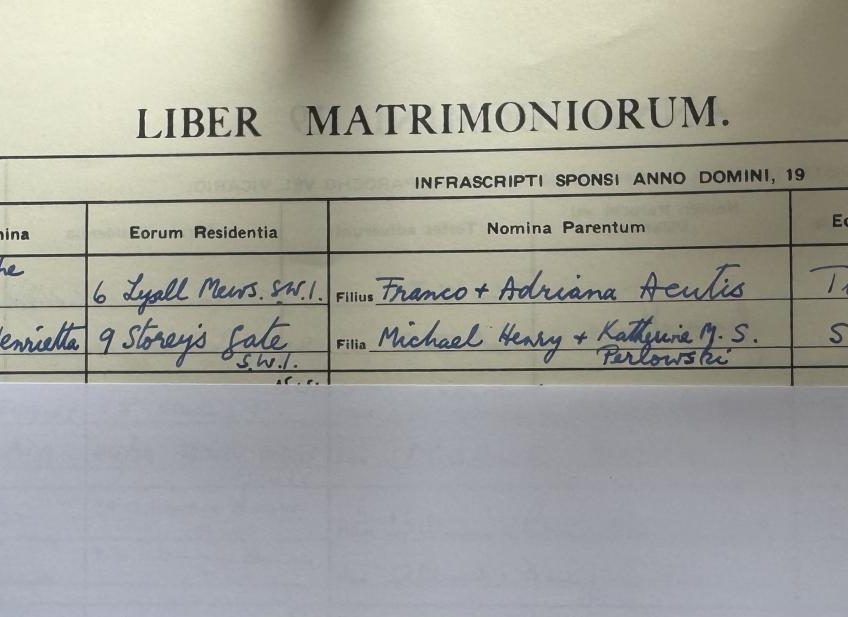 LIBER MATRIMONIORUM.
INFRASCRIPTI SPONSI ANNO DOMINI, 19
Eorum Residentia Nomina Parentum
6 Lyall Mews. S.W.1. Filius Franco + Adriana Acutis
Henrietta 9 Storey's Gate S.W.1. Filia Michael Henry + Katherine M. S. Perlowski